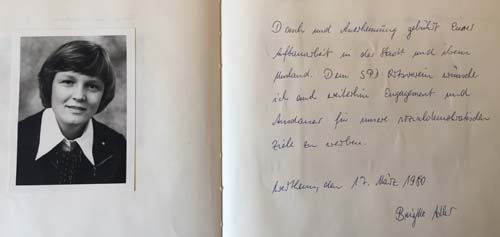 Dank und Anerkennung gebührt Eurer
Aufbauarbeit in der Stadt und ihrem
Umland. Dem SPD Ortsverein wünsche
ich auch weiterhin Engagement und
Ausdauer für unsere sozialdemokratischen
Ziele zu werben.
Wertheim, den 17. März 1980
Brigitte Adler